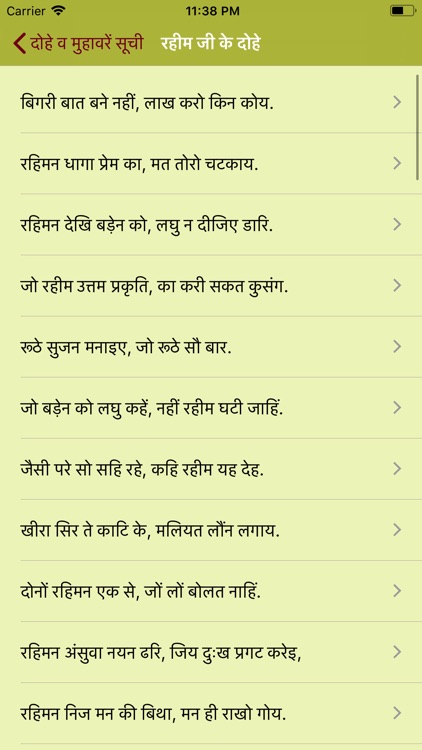 Carrier 11:38 PM
दोहे व मुहावरें सूची रहीम जी के दोहे
बिगरी बात बने नहीं, लाख करो किन कोय.
रहिमन धागा प्रेम का, मत तोरो चटकाय.
रहिमन देखि बड़ेन को, लघु न दीजिए डारि.
जो रहीम उत्तम प्रकृति, का करी सकत कुसंग.
रूठे सुजन मनाइए, जो रूठे सौ बार.
जो बड़ेन को लघु कहें, नहीं रहीम घटी जाहिं.
जैसी परे सो सहि रहे, कहि रहीम यह देह.
खीरा सिर ते काटि के, मलियत लौंन लगाय.
दोनों रहिमन एक से, जों लों बोलत नाहिं.
रहिमन अंसुवा नयन ढरि, जिय दुःख प्रगट करेइ,
रहिमन निज मन की बिथा, मन ही राखो गोय.